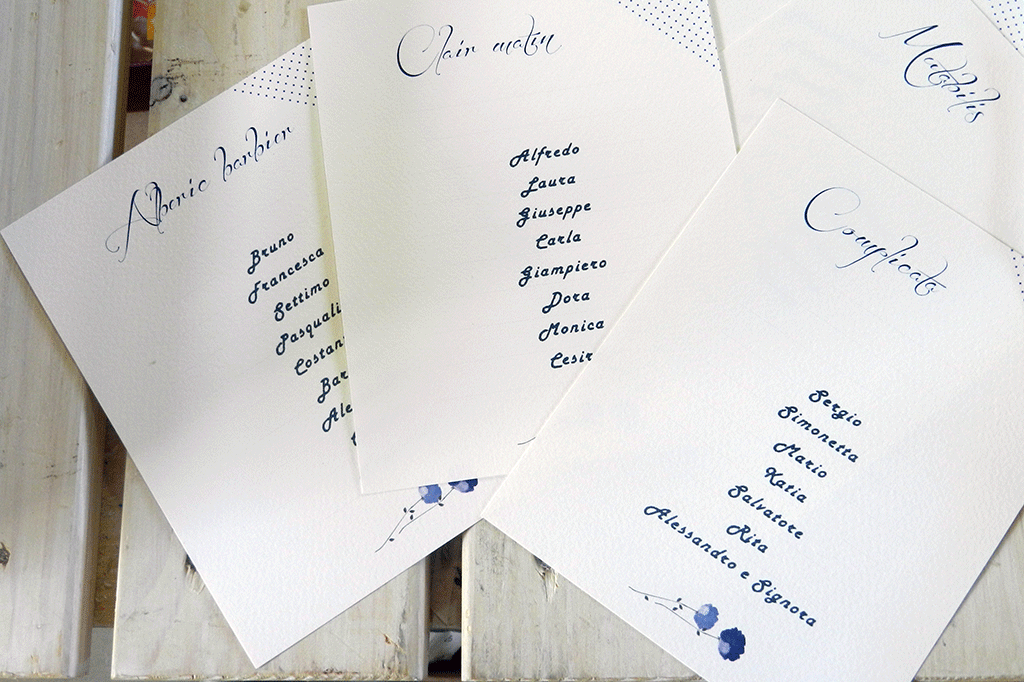 Alberic barbier
Bruno
Francesca
Settimo
Pasquali
Costan
Bar
Ale
Clair matin
Alfredo
Laura
Giuseppe
Carla
Giampiero
Dora
Monica
Cesir
Complicata
Sergio
Simonetta
Mario
Katia
Salvatore
Rita
Alessandro e Signora
Mutabilis